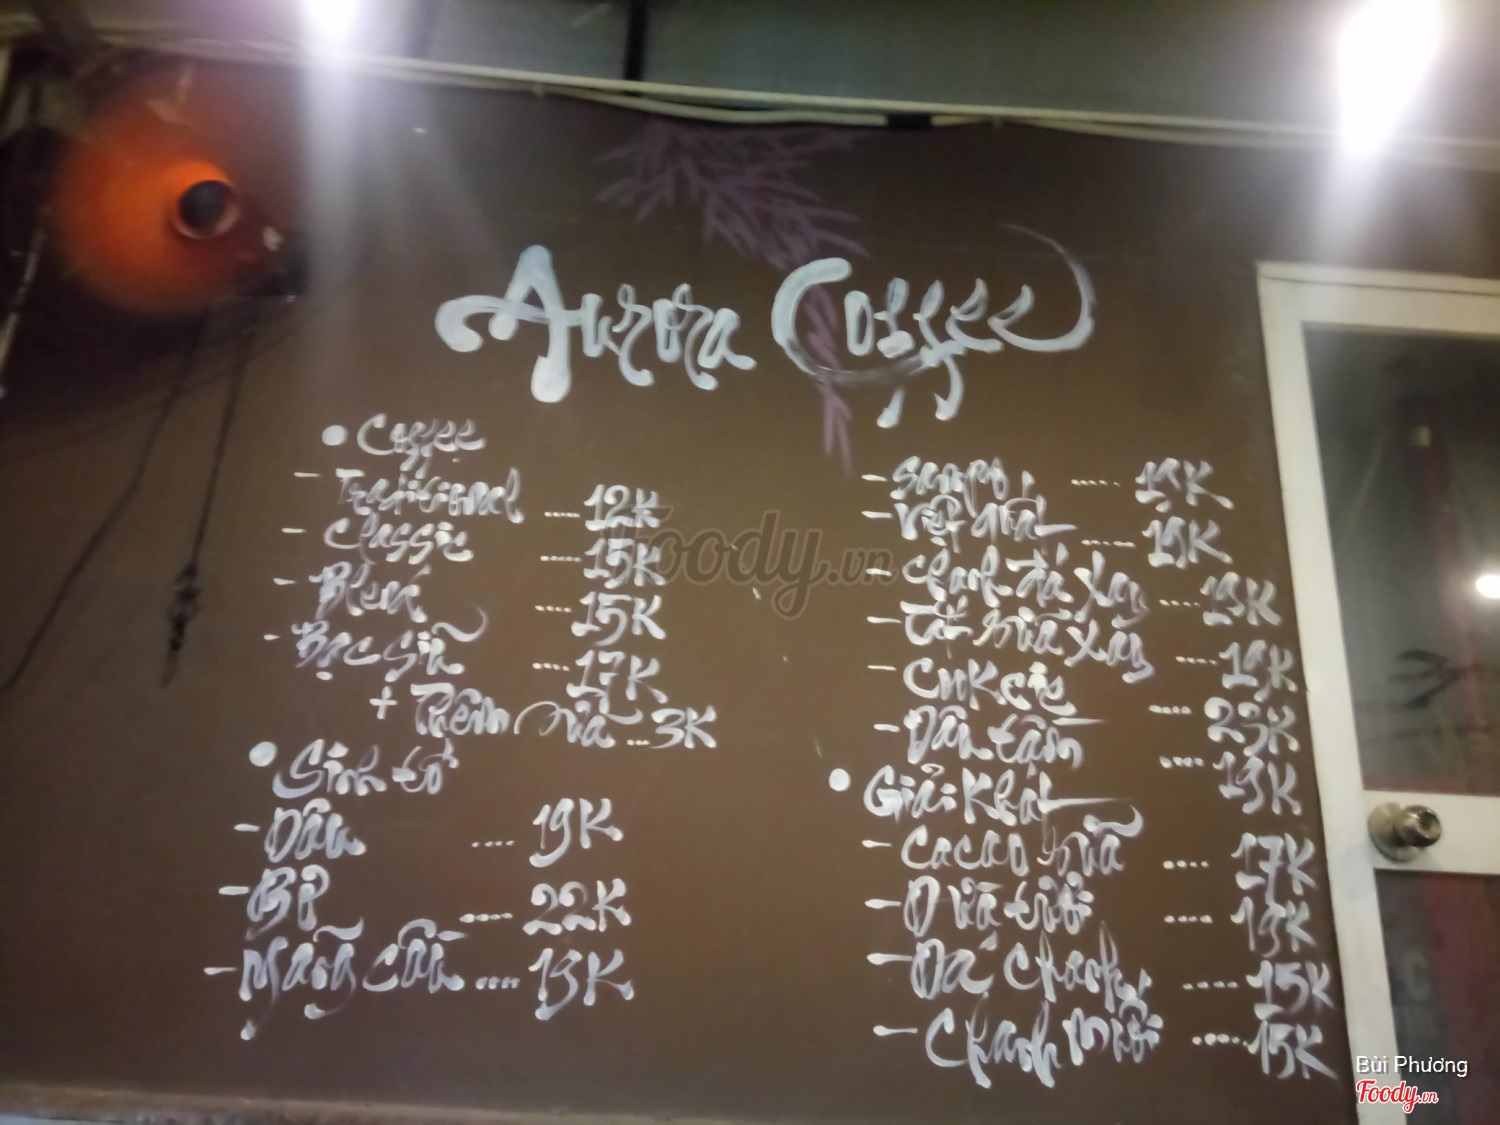 Aurora Coffee
• Coffee
- Traditional .... 12K
- Classic .... 15K
- Blend .... 15K
- Bạc sĩu .... 17K
+ Thêm sữa ... 3K
• Sinh tố
- Dâu .... 19K
- Bơ .... 22K
- Mãng cầu ....
- Sampo .....
- Việt quất ....
- Chanh đá xay ....
- Tắc sữa xay .... 19K
- Cookie .... 23K
- Dâu tằm ....
• Giải khát
- Cacao sữa .... 17K
- Dừa tươi ....
- Đá chanh .... 15K
- Chanh muối ..... 15K
Foody.vn
Bùi Phương
Foody.vn